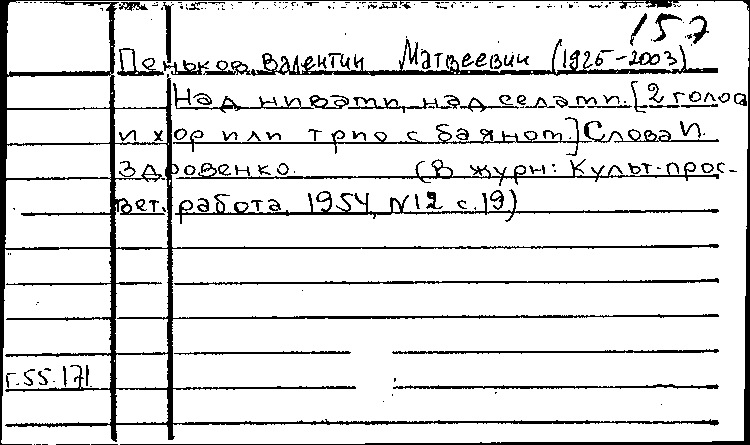 157
Пеньков, Валентин Матвеевич (1925-2003)
Над нивами, над селами. [2 голоса
и хор или трио с баяном.] Слова И.
Здровенко. (В журн: Культ.-прос-
вет. работа, 1954, N12 с.19)
г.55.171